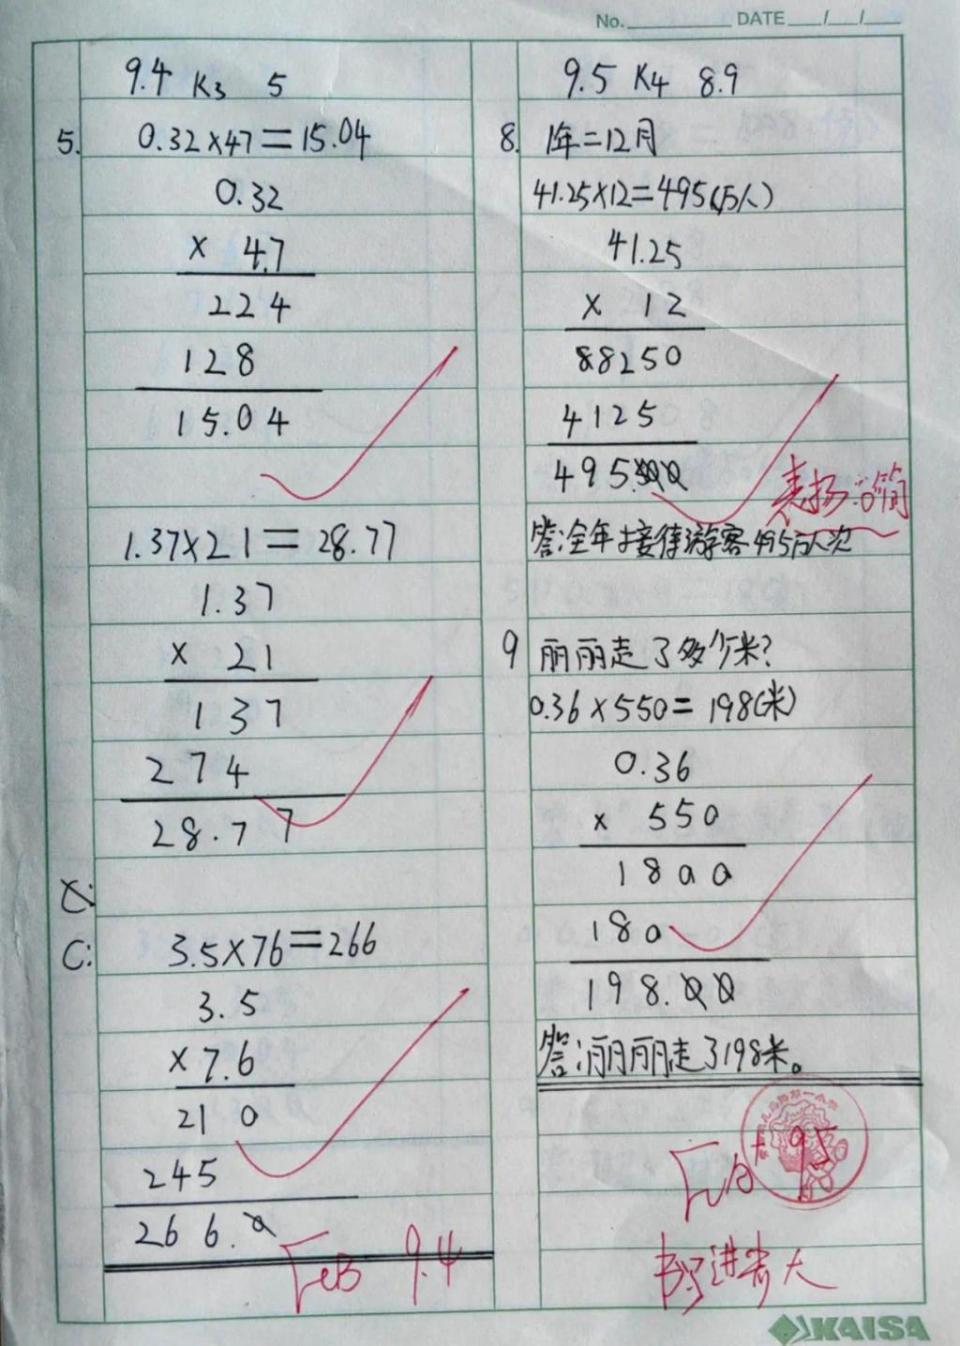 No. DATE / /
9.4 K3 5
5. 0.32×47=15.04
0.32
× 4.7
224
128
15.04
1.37×21=28.77
1.37
× 21
137
274
28.77
C: 3.5×76=266
3.5
×7.6
210
245
266.0
9.4
9.5 K4 8.9
8. 1年=12月
41.25×12=495(万人)
41.25
× 12
88250
4125
495.00
表扬:
答:全年接待游客495万人次
9 丽丽走了多少米?
0.36×550=198(米)
0.36
× 550
1800
180
198.00
答:丽丽走了198米。
9.5
书写进步大
KAISA